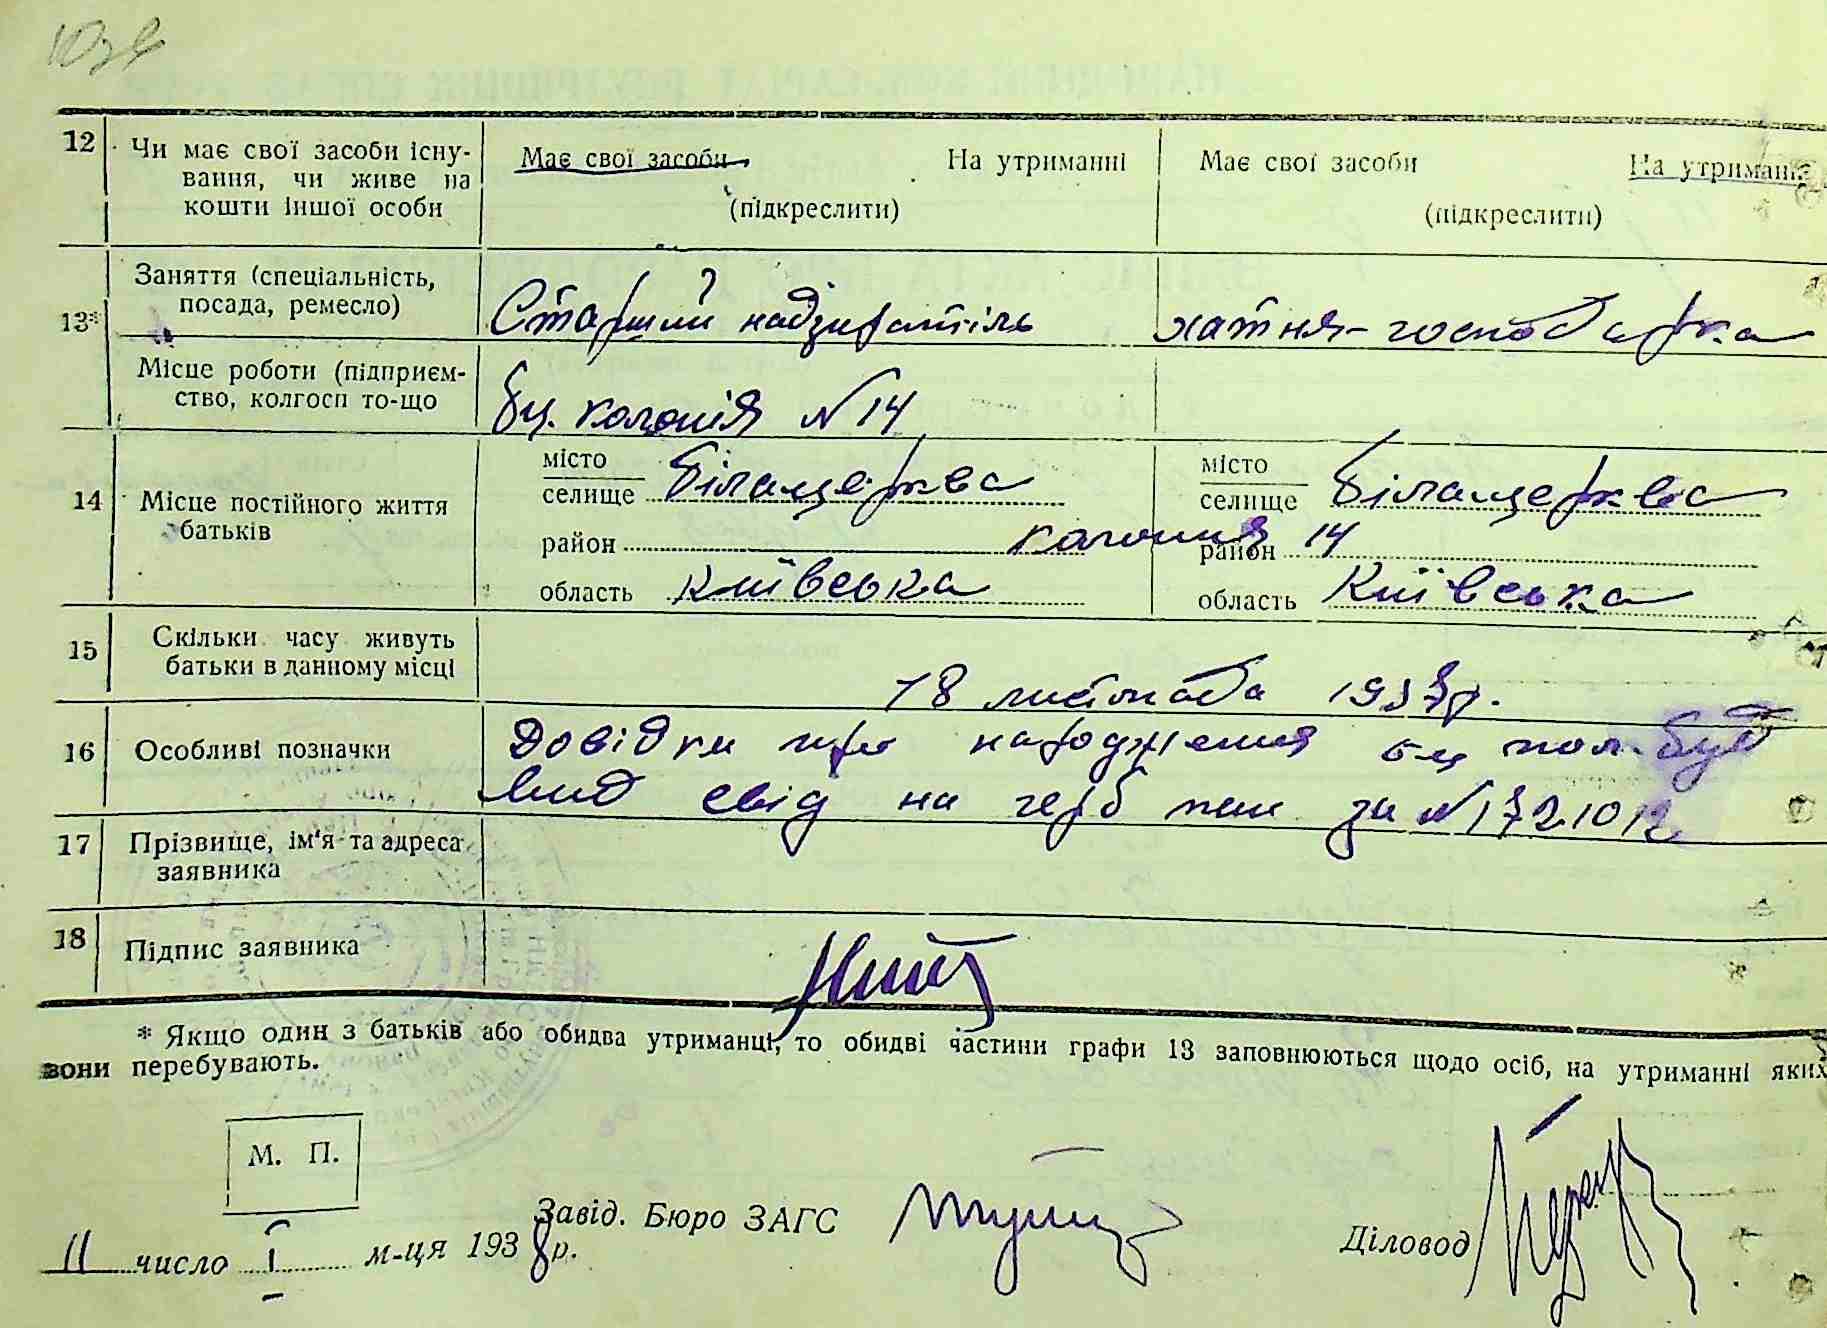 12 Чи має свої засоби існу-
вання, чи живе на
кошти іншої особи
Має свої засоби На утриманні
(підкреслити)
Має свої засоби На утриманні
(підкреслити)
13* Заняття (спеціальність,
посада, ремесло)
Старший надзиратіль
хатня-господарка
Місце роботи (підприєм-
ство, колгосп то-що
бц. колонія N 14
14 Місце постійного життя
батьків
місто
селище Білацерква
район
область Київська
місто
селище Білацерква
колонія район 14
область Київська
15 Скільки часу живуть
батьки в данному місці
18 листопада 1937р.
16 Особливі позначки
Довідки про народження бц пол. буд
вид свід на герб пап за N
17 Прізвище, ім'я та адреса
заявника
18 Підпис заявника
* Якщо один з батьків або обидва утриманці, то обидві частини графи 13 заповнюються щодо осіб, на утриманні яких
вони перебувають.
М. П.
Завід. Бюро ЗАГС
Діловод
11 число I м-ця 1938р.